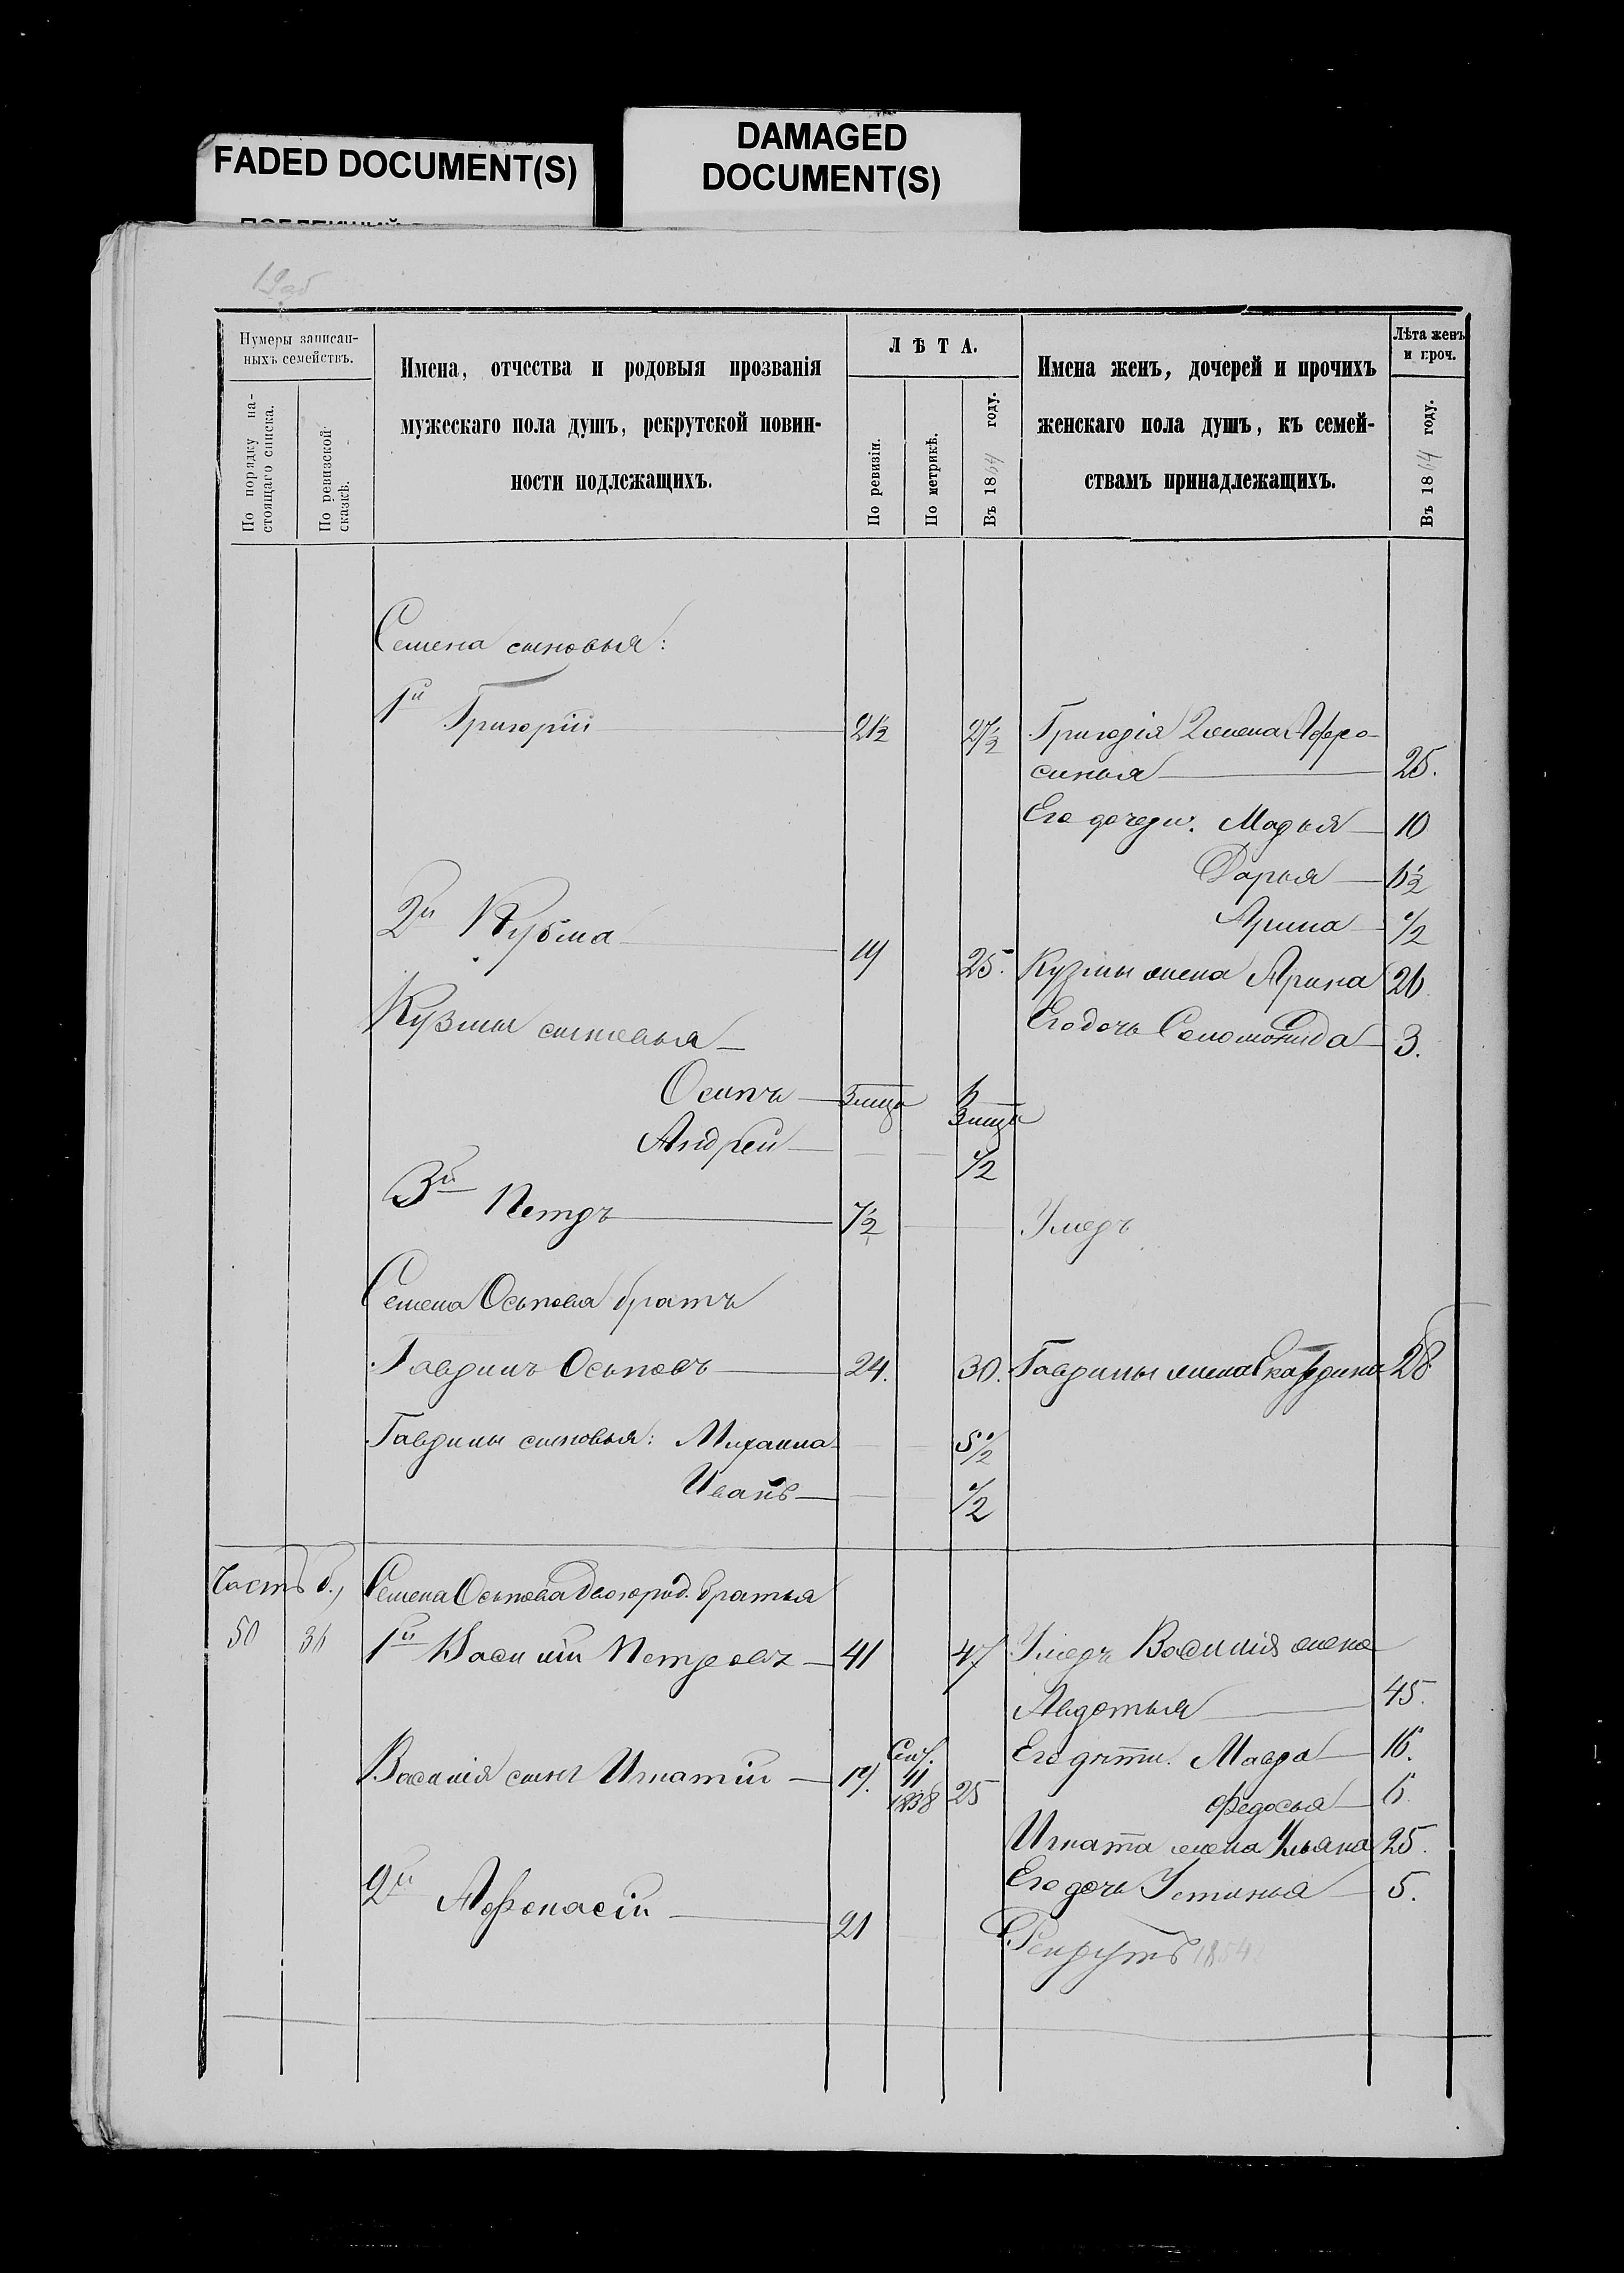 FADED DOCUMENT(S)
DAMAGED
DOCUMENT(S)
19об
Нумеры записан-
ныхъ семействъ.
По порядку на-
стоящаго списка.
По ревизской
сказкѣ.
Имена, отчества и родовыя прозванія
мужескаго пола душъ, рекрутской повин-
ности подлежащихъ.
ЛѢТА.
По ревизіи.
По метрикѣ.
Въ 1864 году.
Имена женъ, дочерей и прочихъ
женскаго пола душъ, къ семей-
ствамъ принадлежащихъ.
Лѣта женъ
и проч.
Въ 1864 году.
Семена сыновья:
1й Григорій 21½ 27½ Григорія 2 жена Афро-
синья 25.
Его дочери: Марья 10
Дарья 6½
Арина ½
2й Кузма 19 25. Кузмы жена Арина 26
Кузмы сыновья Его дочь Соломонида 3.
Осипъ 3 мѣца 6 3 мѣца
Андрей ½
3й Петръ 7½ Умеръ
Семена Осипова братъ
Гаврилъ Осиповъ 24. 30. Гаврилы жена Екатерина 28
Гаврилы сыновья: Михаила 5½
Иванъ ½
Часть б., Семена Осипова двоюрод. братья
50 36 1й Василій Петровъ 41 47 Умеръ Василія жена
Авдотья 45.
Василія сынъ Игнатій 19. Сент. 11 1838 25 Его дѣти: Мавра 16.
Федосья 6.
Игната жена Ульяна 25.
Его дочь Устинья 5.
2й Афонасій 21 Рекрутъ 1854